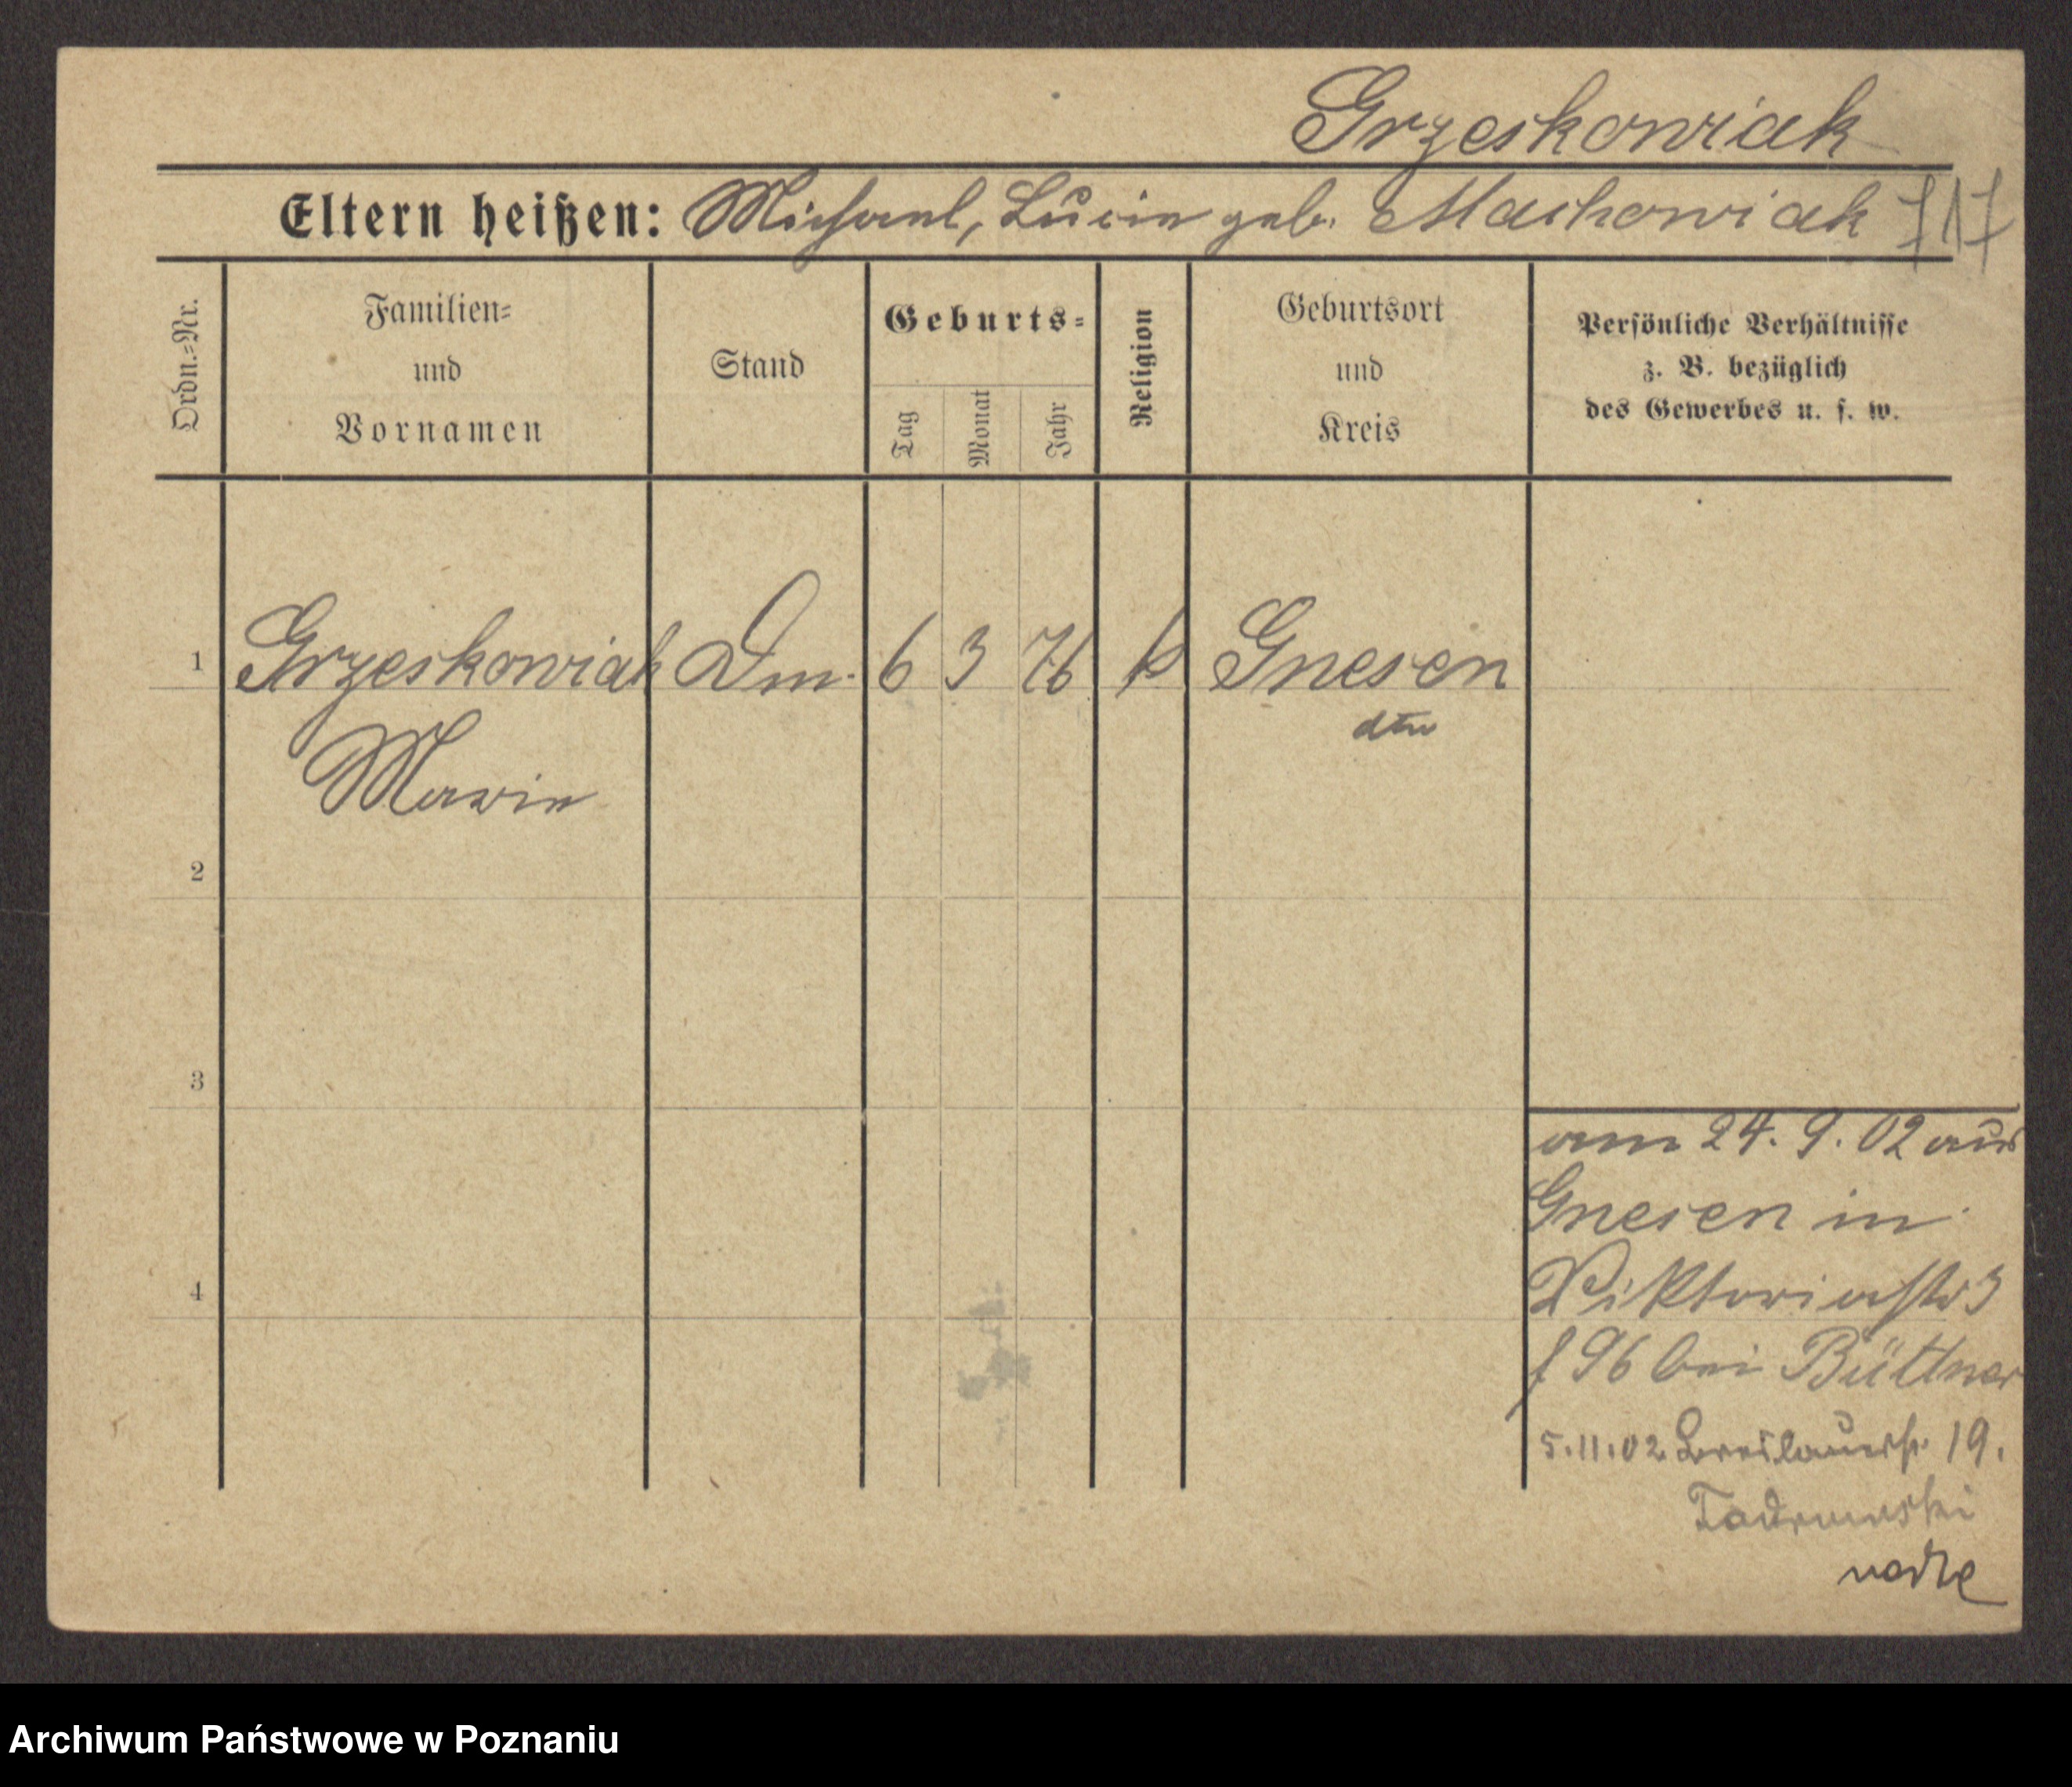 Grzeskowiak
Eltern heißen: Michael, Lucia geb. Machowiak 717
Ordn.=Nr.
Familien=
und
Vornamen
Stand
Geburts=
Tag
Monat
Jahr
Religion
Geburtsort
und
Kreis
Persönliche Verhältnisse
z. B. bezüglich
des Gewerbes u. s. w.
1 Grzeskowiak Dm. 6 3 76 k Gnesen
dto
Maria
2
3
am 24. 9. 02 aus
Gnesen in
Viktoriastr 3
f 96 bei Büttner
4
5.11.02. Breslauerstr. 19.
Archiwum Państwowe w Poznaniu